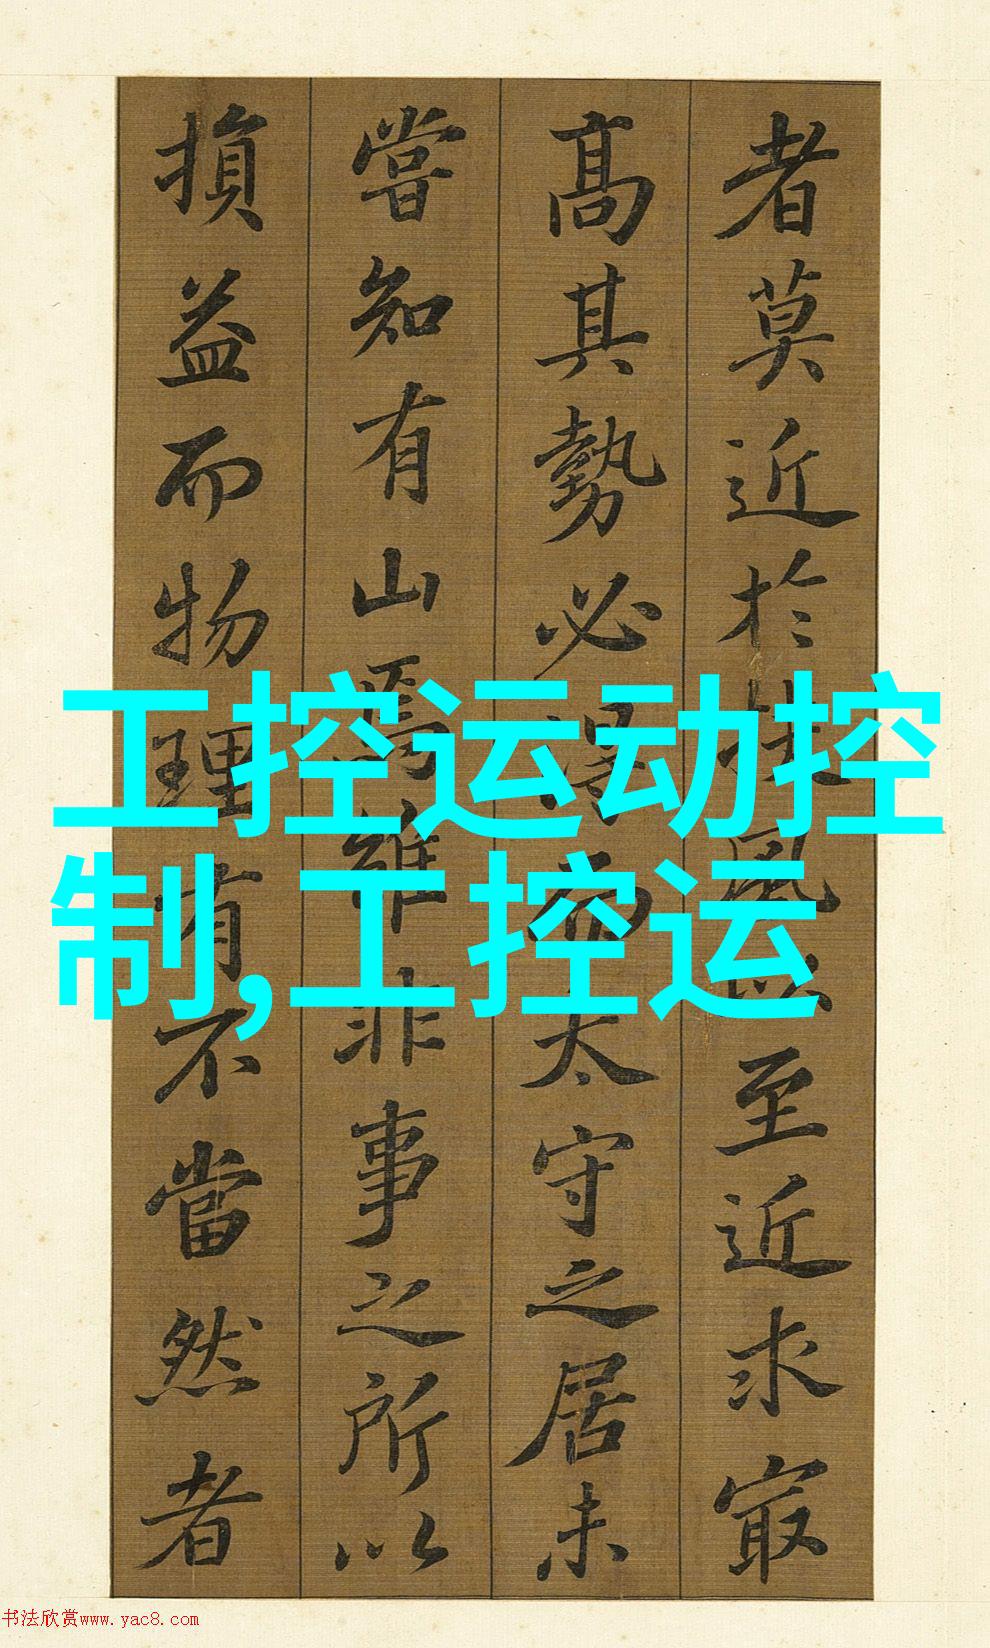 者莫近於扶風以至近求㝡
高其勢必得而太守之居未
嘗知有山焉雖非事之所以
損益而物理有不當然者
工控运动控
制,工控运
书法欣赏www.yac8.com